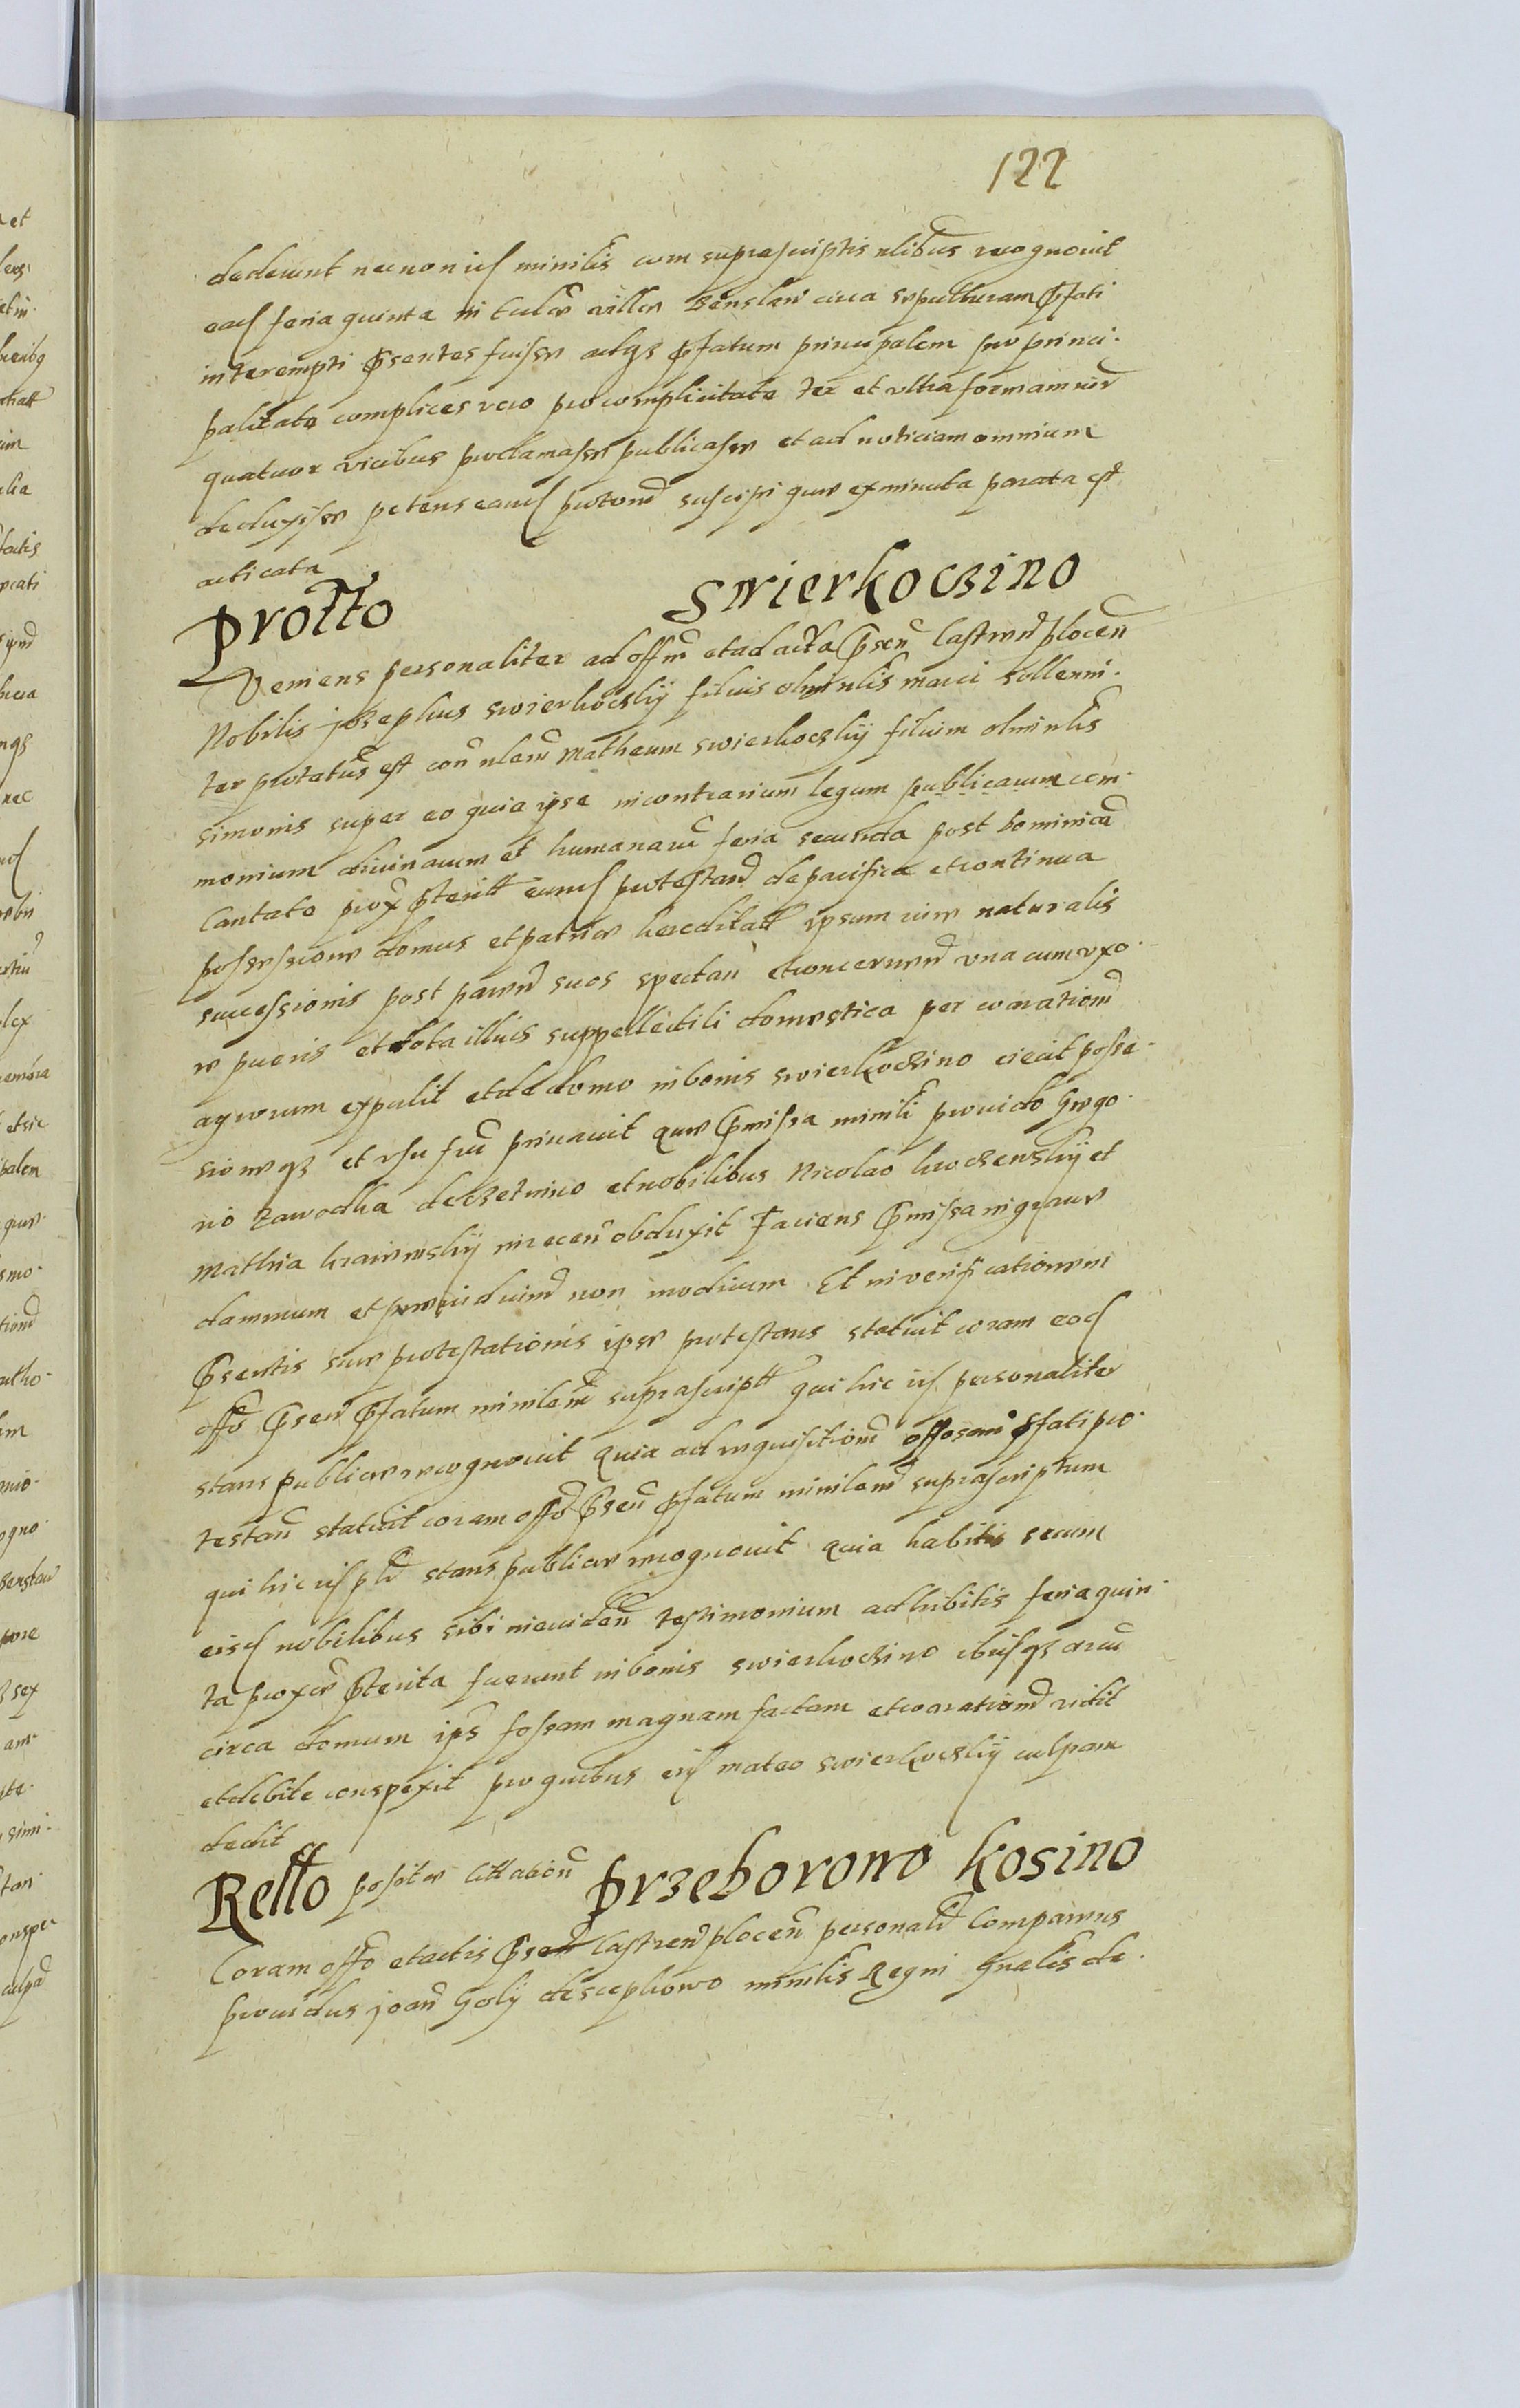 122
dederunt necnon id minilis cum suprascriptis nlibus recognovit
ead feria quinta in eadem villa Zenslaw circa sepulturam pfati
interempti psentes fuisse atqs pfatum principalem suo princi-
palitate complices vero pro complicitate ter et ultra formam iur
quatuor vicibus proclamasse publicasse et ad noticiam omnium
deduxisse petens eand proton suscipi que ex minuta parata est
acticata
Protto Swierkoczino
Veniens personaliter ad offm et ad acta psen Castren plocen
Nobilis Josephus swierkoczky filius olim nlis marci sollenni-
ter protatus est con nlem Matheum swierkoczky filium olim nlis
simonis super eo quia ipse in contrarium legum publicarum com-
monium divinarum et humanaru feria secunda post dominica
Cantate prox pterit eund protestan de pacifica et continua
possessione domus et patrie hereditatt ipsum iure naturalis
successionis post paren suos spectan et concernen una cum uxo-
re pueris et tota illius suppellectili domestica per coarationem
agrorum expulit et de domo in bonis swierkoczino eiecit posse-
sioneqs et usu fru privavit que pmissa minili provido Grego-
rio Zawodka de Czetnino et nobilibus Nicolao kroczewsky et
Mathia kraiewsky in recen obduxit Faciens pmissa in grave
damnum et preiudicium non modicum Et in verificationem
psentis sue protestationis ipse protestans statuit coram eod
offo psen pfatum minilem suprascriptt qui hic id personaliter
stans publice recognovit quia ad requisitionem pfati pro-
testan statuit coram offo psen pfatum minilem suprascriptum
qui hic id plr stans publice recognovit quia habitis secum
eisd nobilibus sibi in eviden testimonium adhibitis feria quin-
ta proxime pterita fuerunt in bonis swierkoczino ibidqs
circa domum ips fossam magnam factam et coarationem vidit
et debite conspexit pro quibus eid mateo swierkoczky culpam
dedit
Rello posite Cittation Przeborowo Kosino
Coram offo et actis psen Castren plocen personalr Comparens
providus joan Goly de scepkowo minilis Regni Gnalis de-